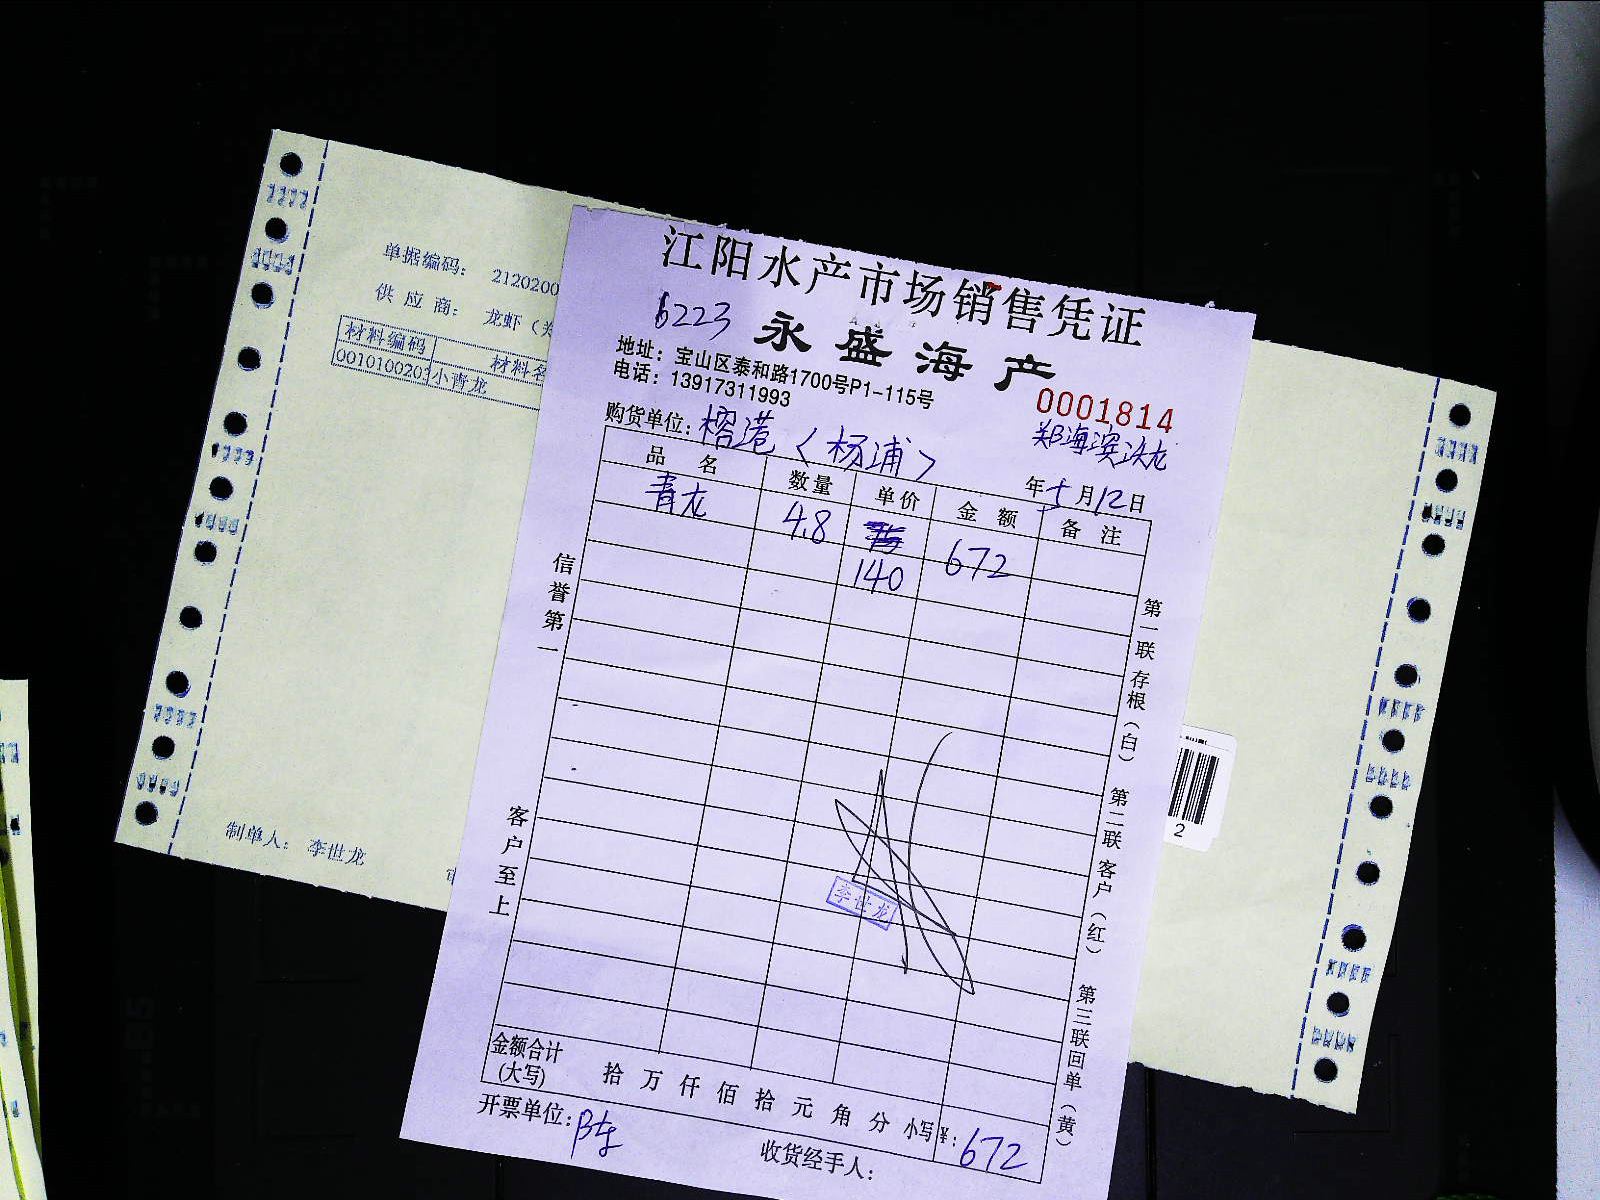 单据编码： 2120200
供 应 商： 龙虾（
材料编码 材料名
0010100203 小青龙
制单人： 李世龙
江阳水产市场销售凭证
6223 永盛海产
地址：宝山区泰和路1700号P1-115号
电话：13917311993
0001814
购货单位：榕港〈杨浦〉
郑海滨
年5月12日
品 名 数量 单价 金 额 备 注
青龙 4.8 140 672
信誉第一
客户至上
李世龙
第一联 存根（白） 第二联 客户（红） 第三联 回单（黄）
2
金额合计
(大写) 拾 万 仟 佰 拾 元 角 分 小写¥：672
开票单位：
收货经手人：